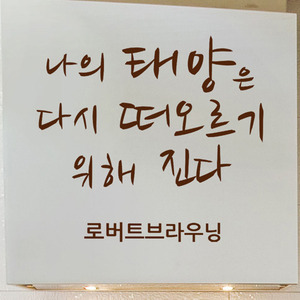 나의 태양은
다시 떠오르기
위해 진다
로버트브라우닝